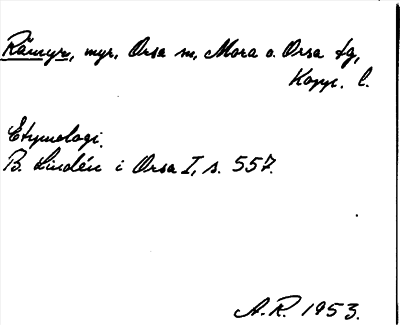 Råmyr, myr, Orsa sn, Mora o. Orsa tg,
Kopp. l.
Etymologi.
B. Lindén i Orsa I, s. 557.
A.R. 1953.